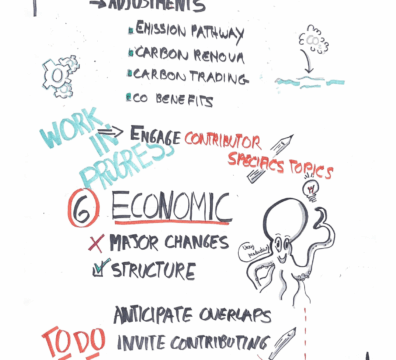 → ADJUSTMENTS
EMISSION PATHWAY
CARBON RENOVA
CARBON TRADING
CO BENEFITS
CO
WORK IN PROGRESS
⇒ ENGAGE CONTRIBUTOR
SPECIFICS TOPICS
6 ECONOMIC
X MAJOR CHANGES
STRUCTURE
ANTICIPATE OVERLAPS
TO DO
INVITE CONTRIBUTING